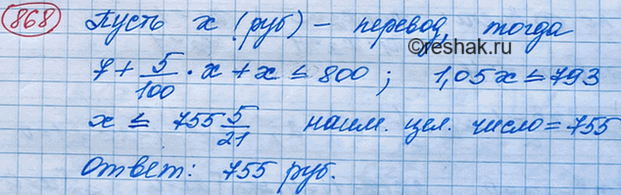 868 Пусть x (руб) – перевод, тогда
©reshak.ru
7 + 5/100 · x + x ≤ 800 ; 1,05x ≤ 793
x ≤ 755 5/21 наим. цел. число = 755
Ответ: 755 руб.